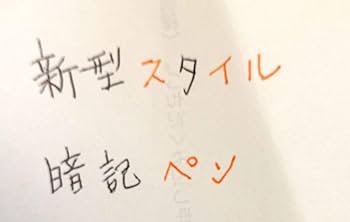 新型スタイル
暗記ペン